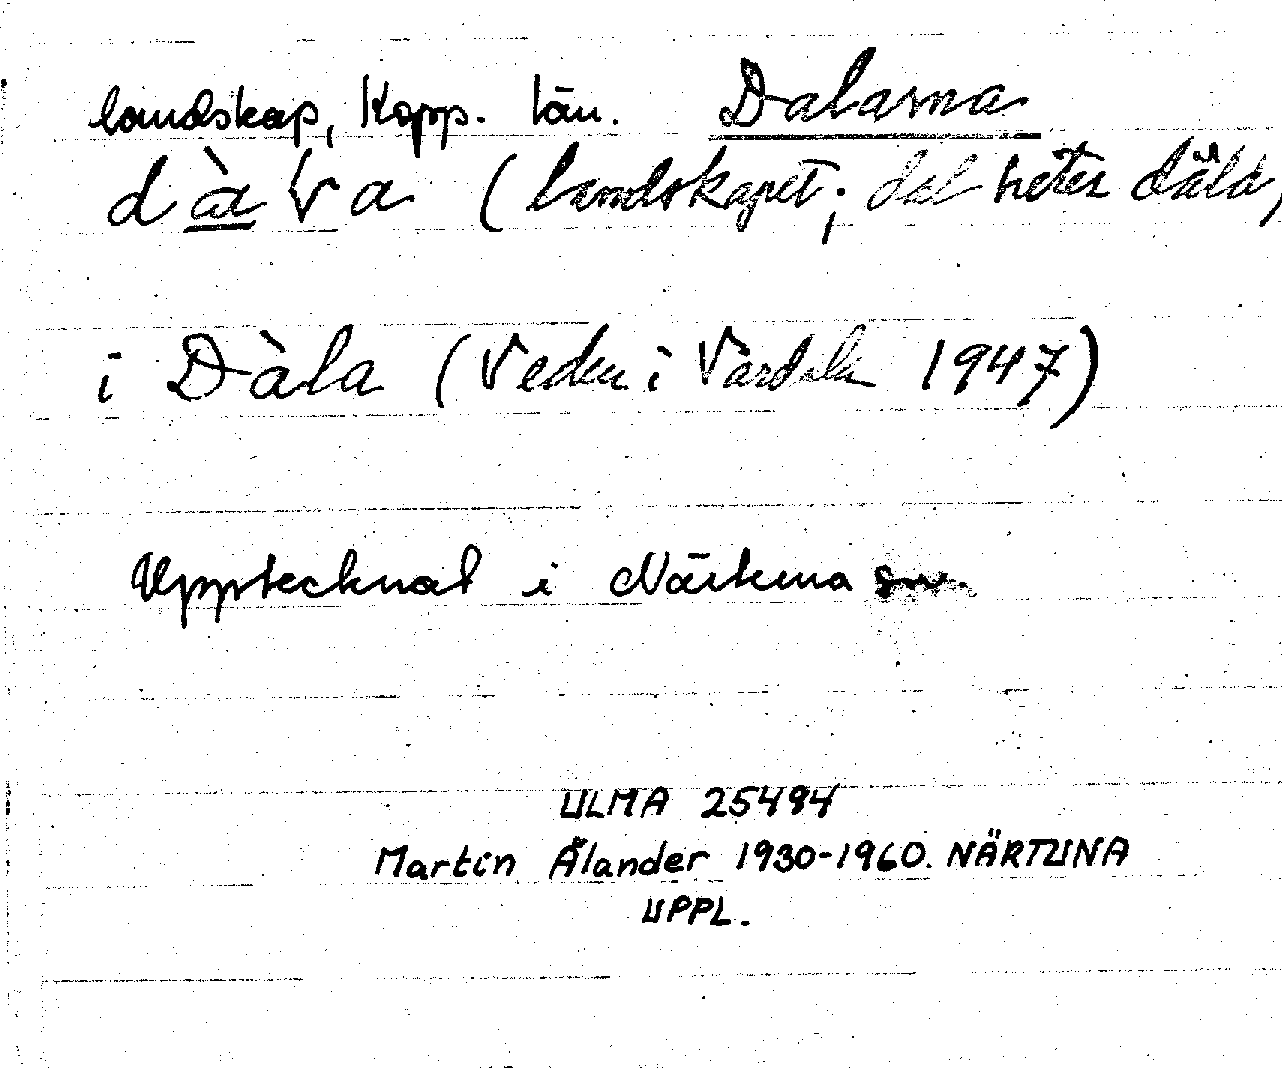 landskap, Kopp. län. Dalarna
dàɽa (landskapet; dal heter däld,
i Dàla (Veden i Vårdala 1947)
Upptecknat i Närtuna sn.
ULMA 25494
Martin Ålander 1930-1960. NÄRTUNA
UPPL.